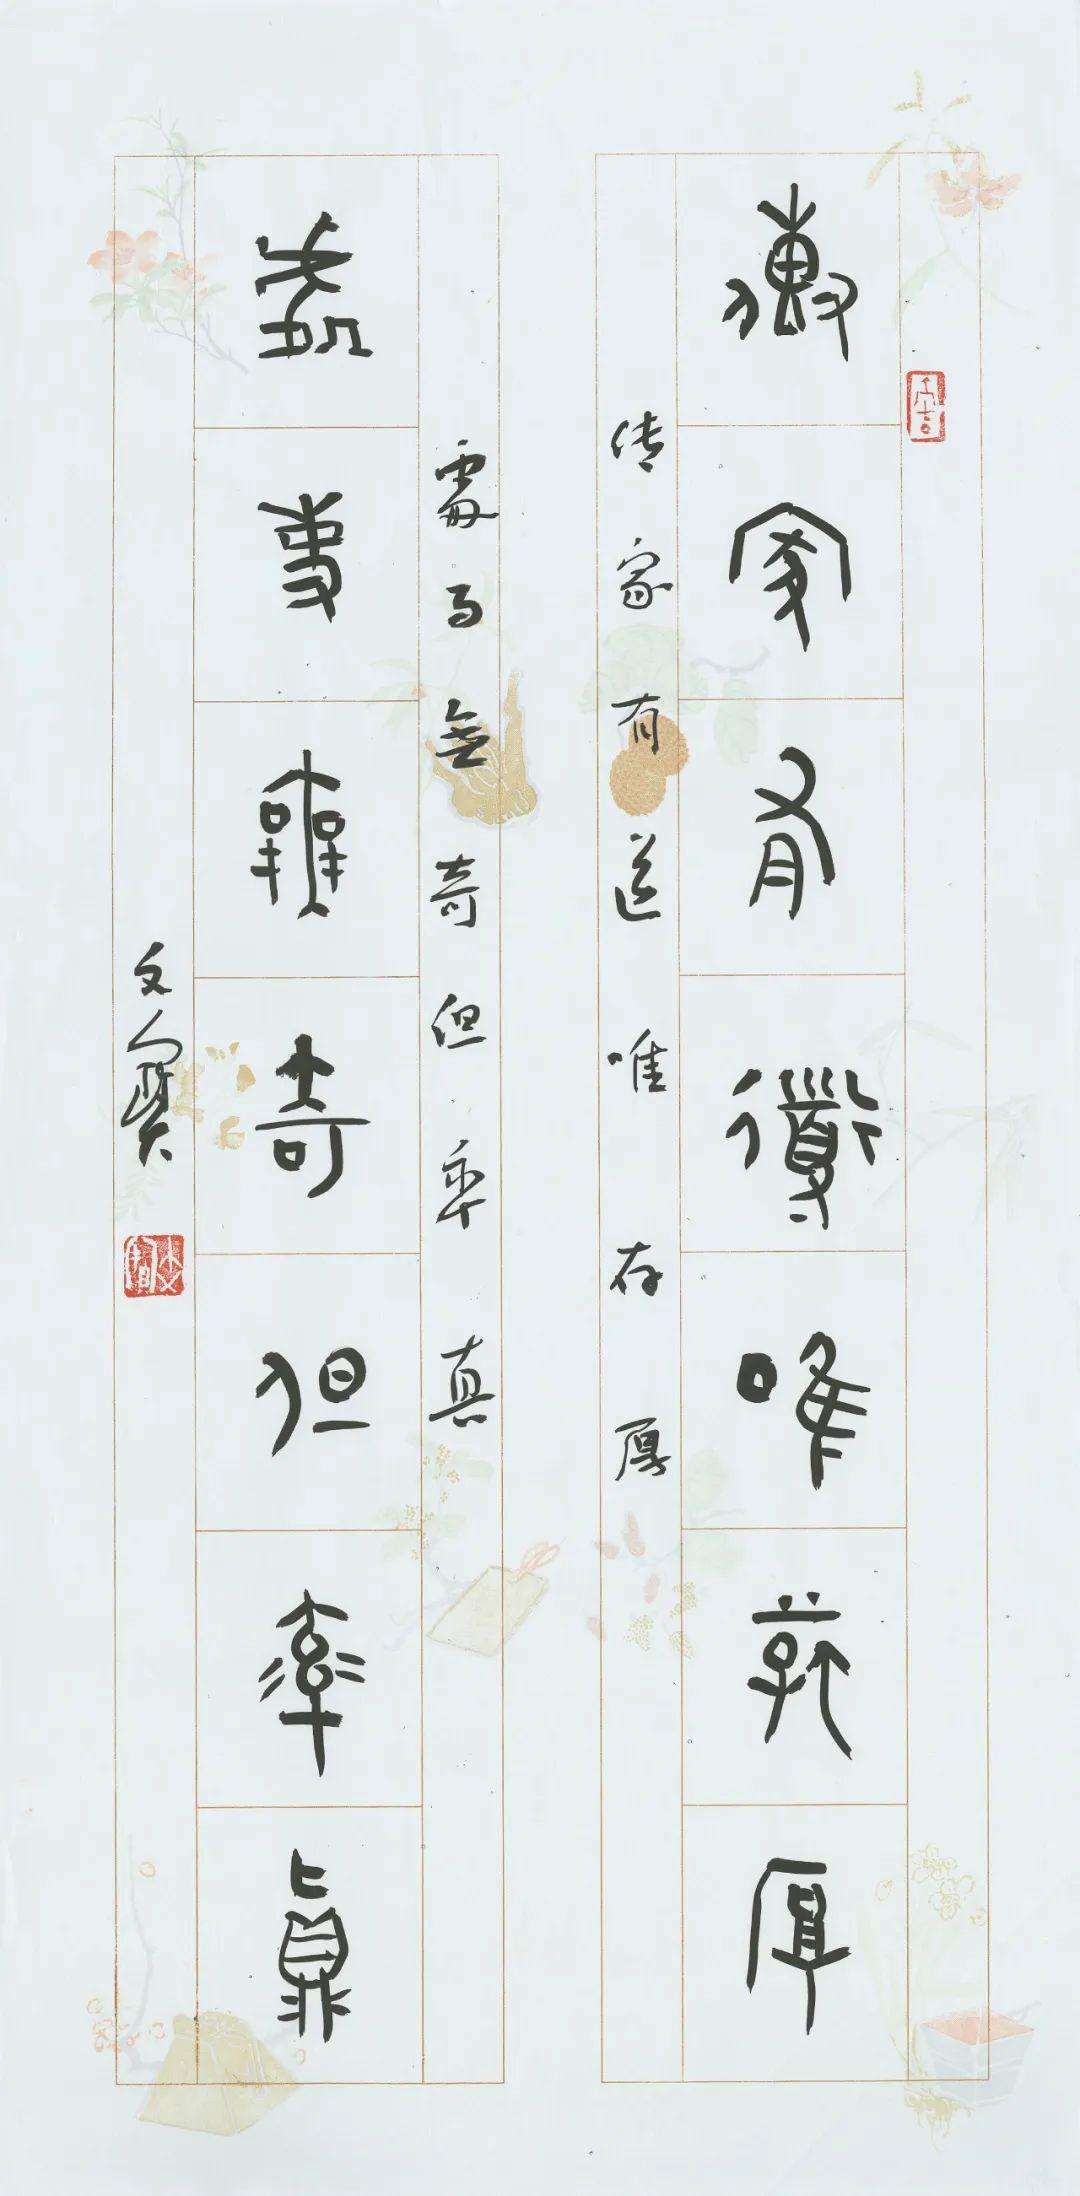 傳家有道唯存厚
传家有道唯存厚
處事無奇但率真
處事無奇但率真
文寶